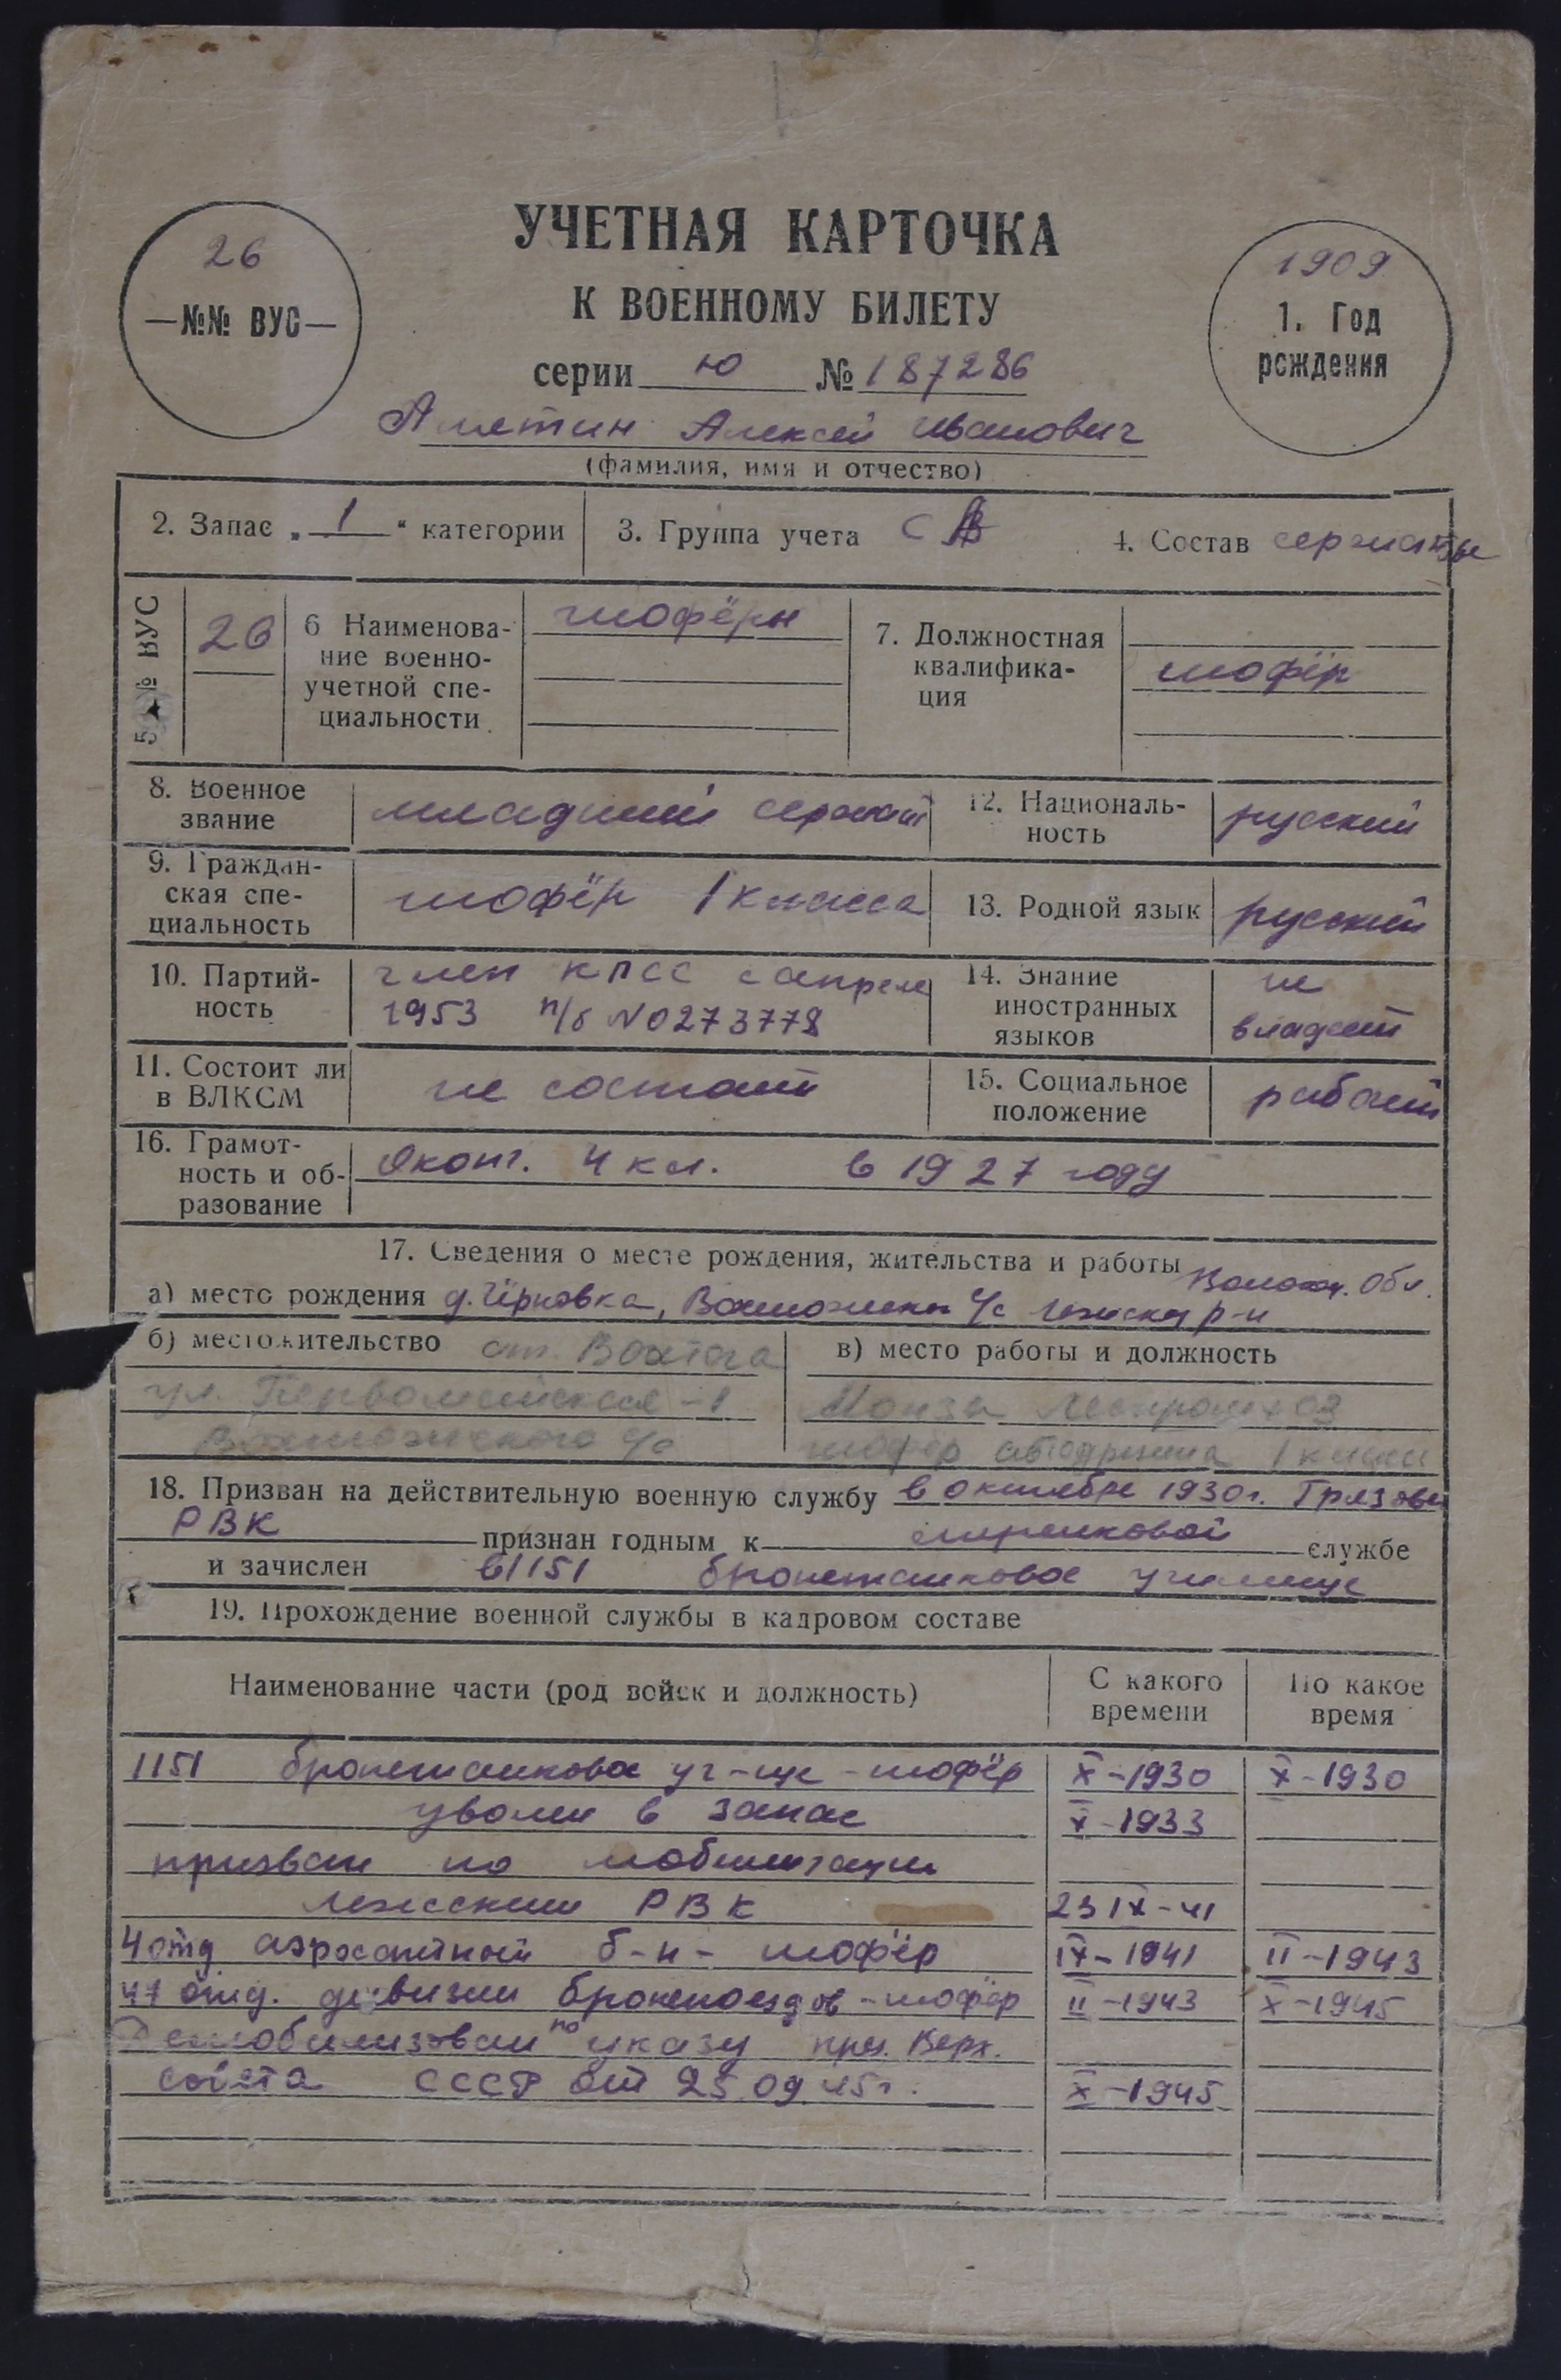 26
—№№ ВУС—
УЧЕТНАЯ КАРТОЧКА
К ВОЕННОМУ БИЛЕТУ
серии Ю № 187286
1909
1. Год
рождения
Алексей Иванович
(фамилия, имя и отчество)
2. Запас „ 1 “ категории
3. Группа учета
4. Состав сержанты
5. № ВУС
26
6 Наименова-
ние военно-
учетной спе-
циальности
шофёры
7. Должностная
квалифика-
ция
шофёр
8. Военное
звание
младший сержант
12. Националь-
ность
русский
9. Граждан-
ская спе-
циальность
шофёр 1 класса
13. Родной язык
русский
10. Партий-
ность
член КПСС с апреля
1953 п/б N0273778
14. Знание
иностранных
языков
не
владеет
11. Состоит ли
в ВЛКСМ
не состоит
15. Социальное
положение
16. Грамот-
ность и об-
разование
Оконч. 4 кл. в 1927 году
17. Сведения о месте рождения, жительства и работы
Волог. Обл.
а) место рождения д. с/с р-н
б) местожительство ст. Вохтога
ул. Первомайская -1
с/с
в) место работы и должность
Монза Леспромхоз
шофер 1 класса
18. Призван на действительную военную службу в октябре 1930г. Грязовец
РВК признан годным к службе
и зачислен в 1151 бронетанковое училище
19. Прохождение военной службы в кадровом составе
Наименование части (род войск и должность)
С какого
времени
По какое
время
1151 бронетанковое уч-ще - шофёр X-1930 X-1930
уволен в запас X-1933
призван по мобилизации
Лежским РВК 23 IX-41
4 отд аэросанный б-н - шофёр IX-1941 II-1943
47 отд. дивизии бронепоездов - шофёр II-1943 X-1945
Демобилизован по указу през. Верх.
совета СССР от 25.09.45г. X-1945